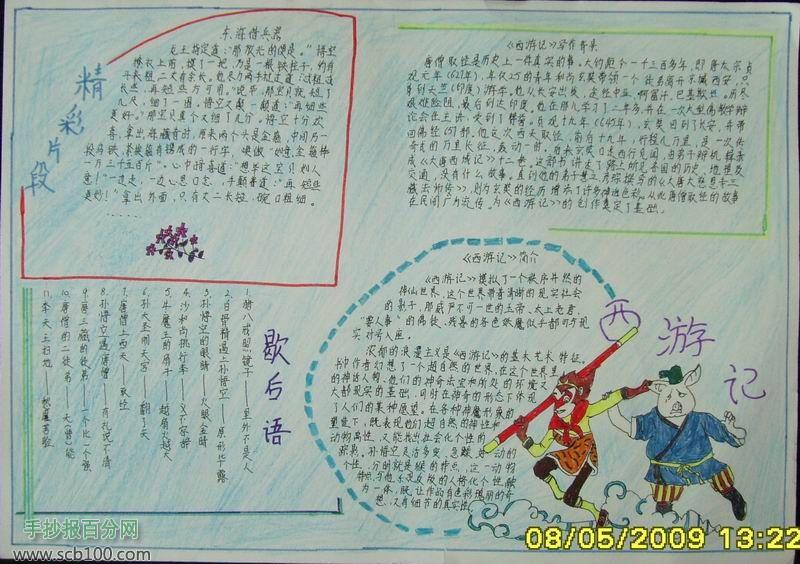 精彩片段
东海借兵器
龙王指定道:“那放光的便是。”悟空
撩衣上前,摸了一把,乃是一根铁柱子,约有
斗来粗,二丈有余长。他尽力两手挝过道:“过粗过
长些,再短些方可用。”说毕,那宝贝就短了
几尺,细了一围。悟空又颠一颠道:“再细些
更好。”那宝贝真个又细了几分。悟空十分欢
喜,拿出海藏看时,原来两个头是金箍,中间乃一
段乌铁,紧挨箍有镌成的一行字,唤做“如意金箍棒
一万三千五百斤”。心中暗喜道:“想来这宝贝如人
意!”一边走,一边心思口念,手颠着道:“再短些
更妙!”拿出外面,只有丈二长短,碗口粗细。
……
《西游记》写作背景
唐僧取经是历史上一件真实的事。大约距今一千三百多年前,即唐太宗贞
观元年(627年),年仅25的青年和尚玄奘带领一个徒弟离开京城长安,只
身到天竺(印度)游学。他从长安出发,途经中亚,阿富汗,巴基斯坦。历尽
艰难险阻,最后到达印度。他在那儿学习了二年多,并在一次大型佛教辩
论会任主讲,受到了赞誉。贞观十九年(645年),玄奘回到了长安,并带
回佛经657部。他这次西天取经,前后十九年,行程几万里,是一次传
奇式的万里长征,轰动一时。后来玄奘口述西行见闻,由弟子辩机辑录
成《大唐西域记》十二卷。这部书讲述了路上所见各国的历史、地理及
交通,没有什么故事。直到他的弟子慧立、彦琮撰写的《大唐大慈恩寺三
藏法师传》,则为玄奘的经历增添了许多神话色彩,从此唐僧取经的故事
在民间广为流传,为《西游记》的创作奠定了基础。
《西游记》简介
《西游记》模拟了一个秩序井然的
神仙世界,这个世界带着清晰的现实社会
的影子,那威严不可一世的玉帝、太上老君
实对号入座。
浓郁的浪漫主义是《西游记》的基本艺术特征。
书中作者幻想了一个超自然的世界,在这个世界里
的神话人物,他们的神奇法宝和所处的环境又
大都现实的基础,同时在神奇的形态下体现
了人们的某种愿望。在各种神魔形象的
塑造下,既表现他们超自然的神性和
动物属性,又能找出社会化个性的
一为一体,既让作品有色彩瑰丽的奇
想,又有细节的真实性。
西游记
歇后语
1.猪八戒照镜子——里外不是人
2.白骨精遇上孙悟空——原形毕露
3.孙悟空的眼睛——火眼金睛
4.沙和尚挑行李——义不容辞
5.牛魔王的扇子——越扇火越大
6.孙大圣闹天宫——翻了天
7.唐僧上西天——取经
8.孙悟空遇唐僧——有礼说不清
9.唐三藏的徒弟——一个比一个强
10.唐僧的二徒弟——天(悟)能
11.李天王扫地
手抄报百分网
www.scb100.com
08/05/2009 13:22